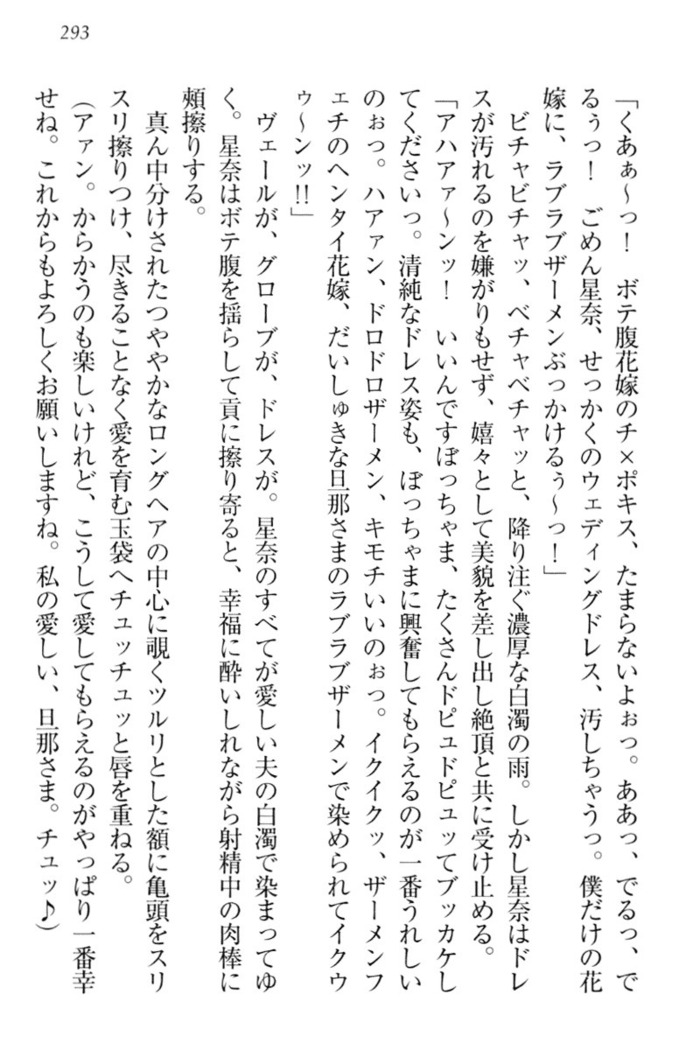 293
「くあぁ～っ！　ボテ腹花嫁のチ×ポキス、たまらないよぉっ。ああっ、でるっ、で
るぅっ！　ごめん星奈、せっかくのウェディングドレス、汚しちゃうっ。僕だけの花
嫁に、ラブラブザーメンぶっかけるぅ～っ！」
　ビチャビチャッ、ベチャベチャッと、降り注ぐ濃厚な白濁の雨。しかし星奈はドレ
スが汚れるのを嫌がりもせず、嬉々として美貌を差し出し絶頂と共に受け止める。
「アハアァ～ンッ！　いいんですぼっちゃま、たくさんドピュドピュッてブッカケし
てくださいっ。清純なドレス姿も、ぼっちゃまに興奮してもらえるのが一番うれしい
のぉっ。ハアァン、ドロドロザーメン、キモチいいのぉっ。イクイクッ、ザーメンフ
ェチのヘンタイ花嫁、だいしゅきな旦那さまのラブラブザーメンで染められてイクウ
ゥ～ンッ!!」
　ヴェールが、グローブが、ドレスが。星奈のすべてが愛しい夫の白濁で染まってゆ
く。星奈はボテ腹を揺らして貢に擦り寄ると、幸福に酔いしれながら射精中の肉棒に
頬擦りする。
　真ん中分けされたつややかなロングヘアの中心に覗くツルリとした額に亀頭をスリ
スリ擦りつけ、尽きることなく愛を育む玉袋へチュッチュッと唇を重ねる。
（アァン。からかうのも楽しいけれど、こうして愛してもらえるのがやっぱり一番幸
せね。これからもよろしくお願いしますね。私の愛しい、旦那さま。チュッ♪）